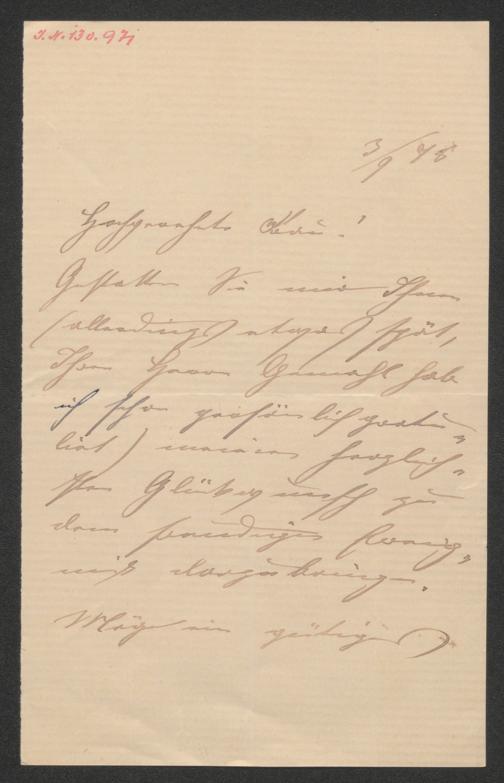 I.N. 130.971
3/9 98
Hochgeehrte Frau!
Gestatten Sie mir Ihnen
(allerdings etwas spät,
Ihrem Herrn Gemahl hab
ich schon persönlich gratu-
lirt) meinen herzlich-
sten Glückwunsch zu
dem freudigen Ereig-
niß darzubringen.
Möge ein gütiges